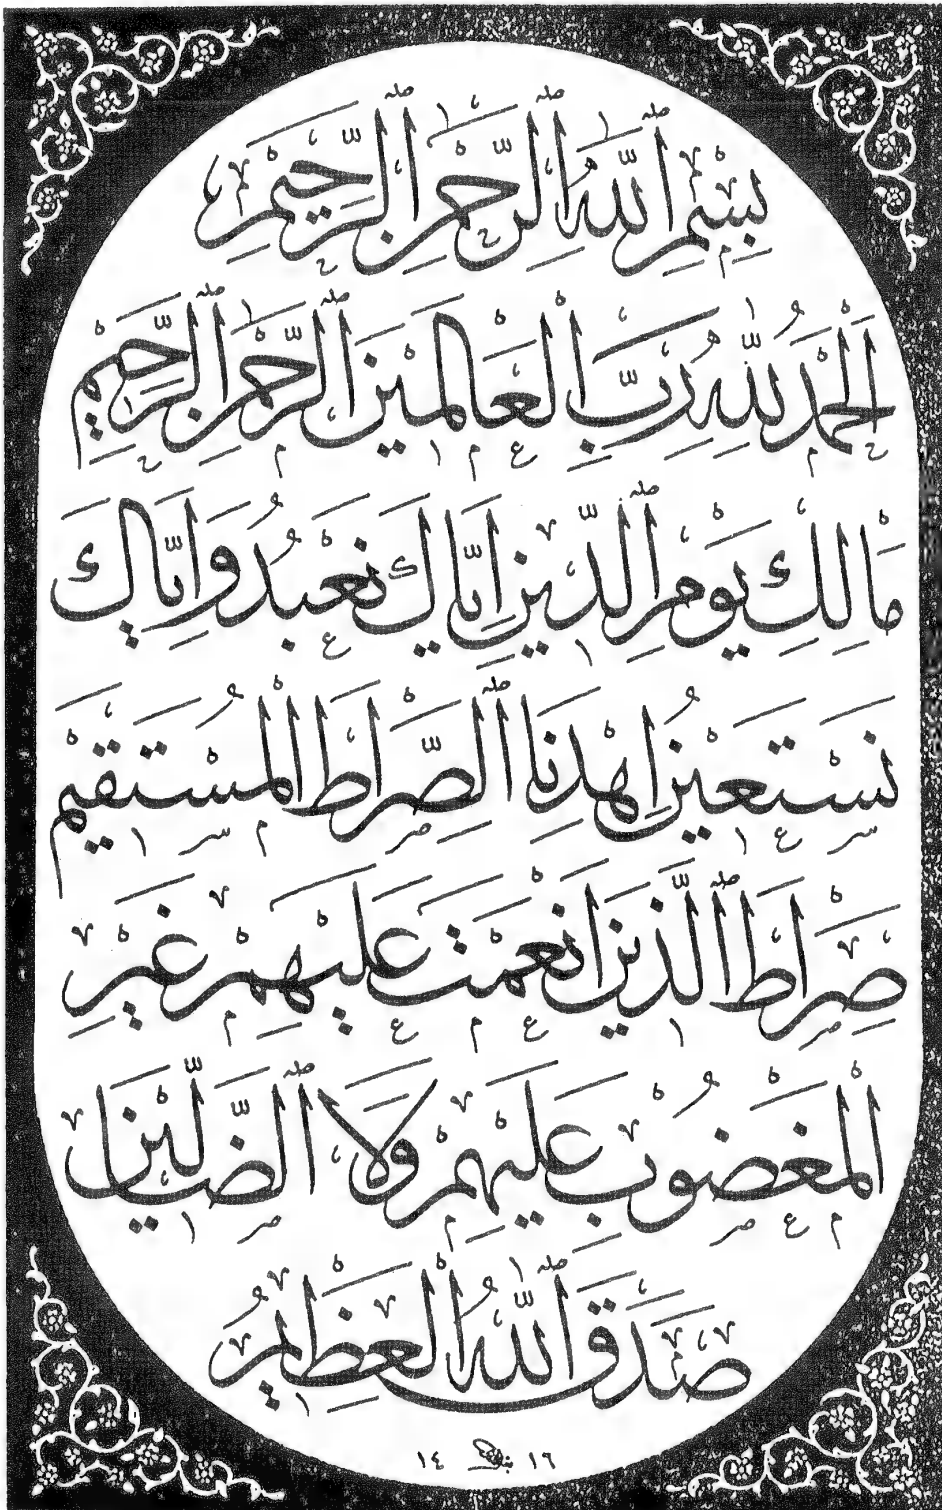 بِسْمِ ٱللّٰهِ ٱلرَّحْمٰنِ ٱلرَّحِيْمِ
اَلْحَمْدُ لِلّٰهِ رَبِّ الْعَالَمِيْنَ ٱلرَّحْمٰنِ ٱلرَّحِيْمِ
مَالِكِ يَوْمِ ٱلدِّيْنِ اِيَّاكَ نَعْبُدُ وَاِيَّاكَ
نَسْتَعِيْنُ اِهْدِنَا ٱلصِّرَاطَ الْمُسْتَقِيْمَ
صِرَاطَ ٱلَّذِيْنَ اَنْعَمْتَ عَلَيْهِمْ غَيْرِ
الْمَغْضُوْبِ عَلَيْهِمْ وَلَا ٱلضَّالِّيْنَ
صَدَقَ ٱللّٰهُ الْعَظِيْمُ
١٤ ١٦